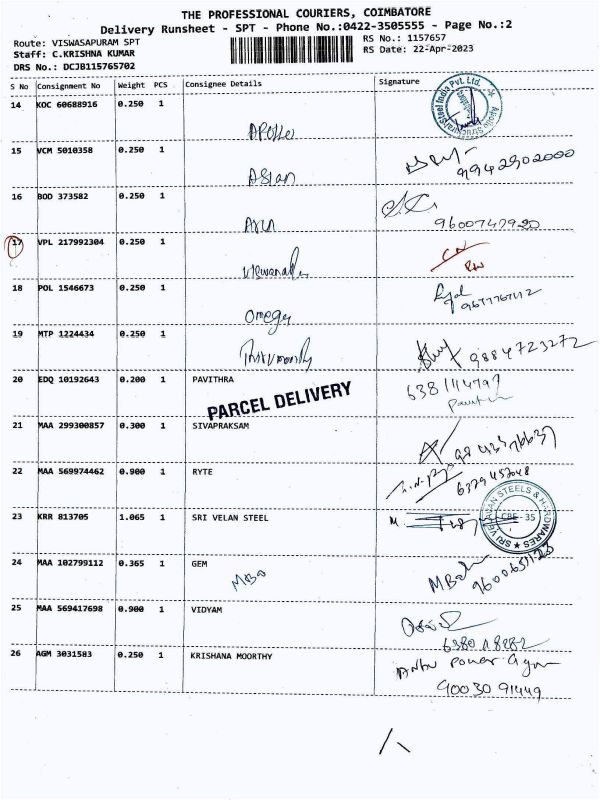 THE PROFESSIONAL COURIERS, COIMBATORE
Delivery Runsheet - SPT - Phone No.:0422-3505555 - Page No.:2
Route: VISWASAPURAM SPT RS No.: 1157657
Staff: C.KRISHNA KUMAR RS Date: 22-Apr-2023
DRS No.: DCJB115765702
S No Consignment No Weight PCS Consignee Details Signature
14 KOC 60688916 0.250 1
Apollo
15 VCM 5010358 0.250 1
Asian 9942902000
16 BOD 373582 0.250 1
Arun 9600747920
17 VPL 217992304 0.250 1
18 POL 1546673 0.250 1
Omega
19 MTP 1224434 0.250 1
9884723272
20 EDQ 10192643 0.200 1 PAVITHRA
PARCEL DELIVERY
21 MAA 299300857 0.300 1 SIVAPRAKSAM
22 MAA 569974462 0.900 1 RYTE
6379457048
23 KRR 813705 1.065 1 SRI VELAN STEEL
SRI VELAN STEELS & HARDWARES
CBE - 35
24 MAA 102799112 0.365 1 GEM
MBa
25 MAA 569417698 0.900 1 VIDYAM
26 AGM 3031583 0.250 1 KRISHANA MOORTHY
90030 91449